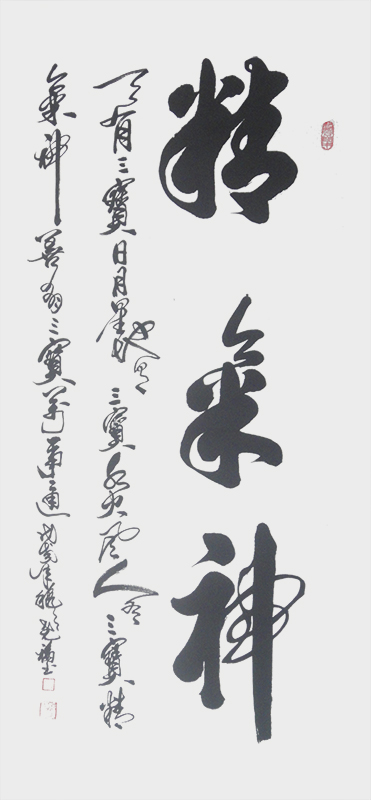 精氣神
天有三寶日月星地有三寶水火風人有三寶精
氣神善用三寶萬事通